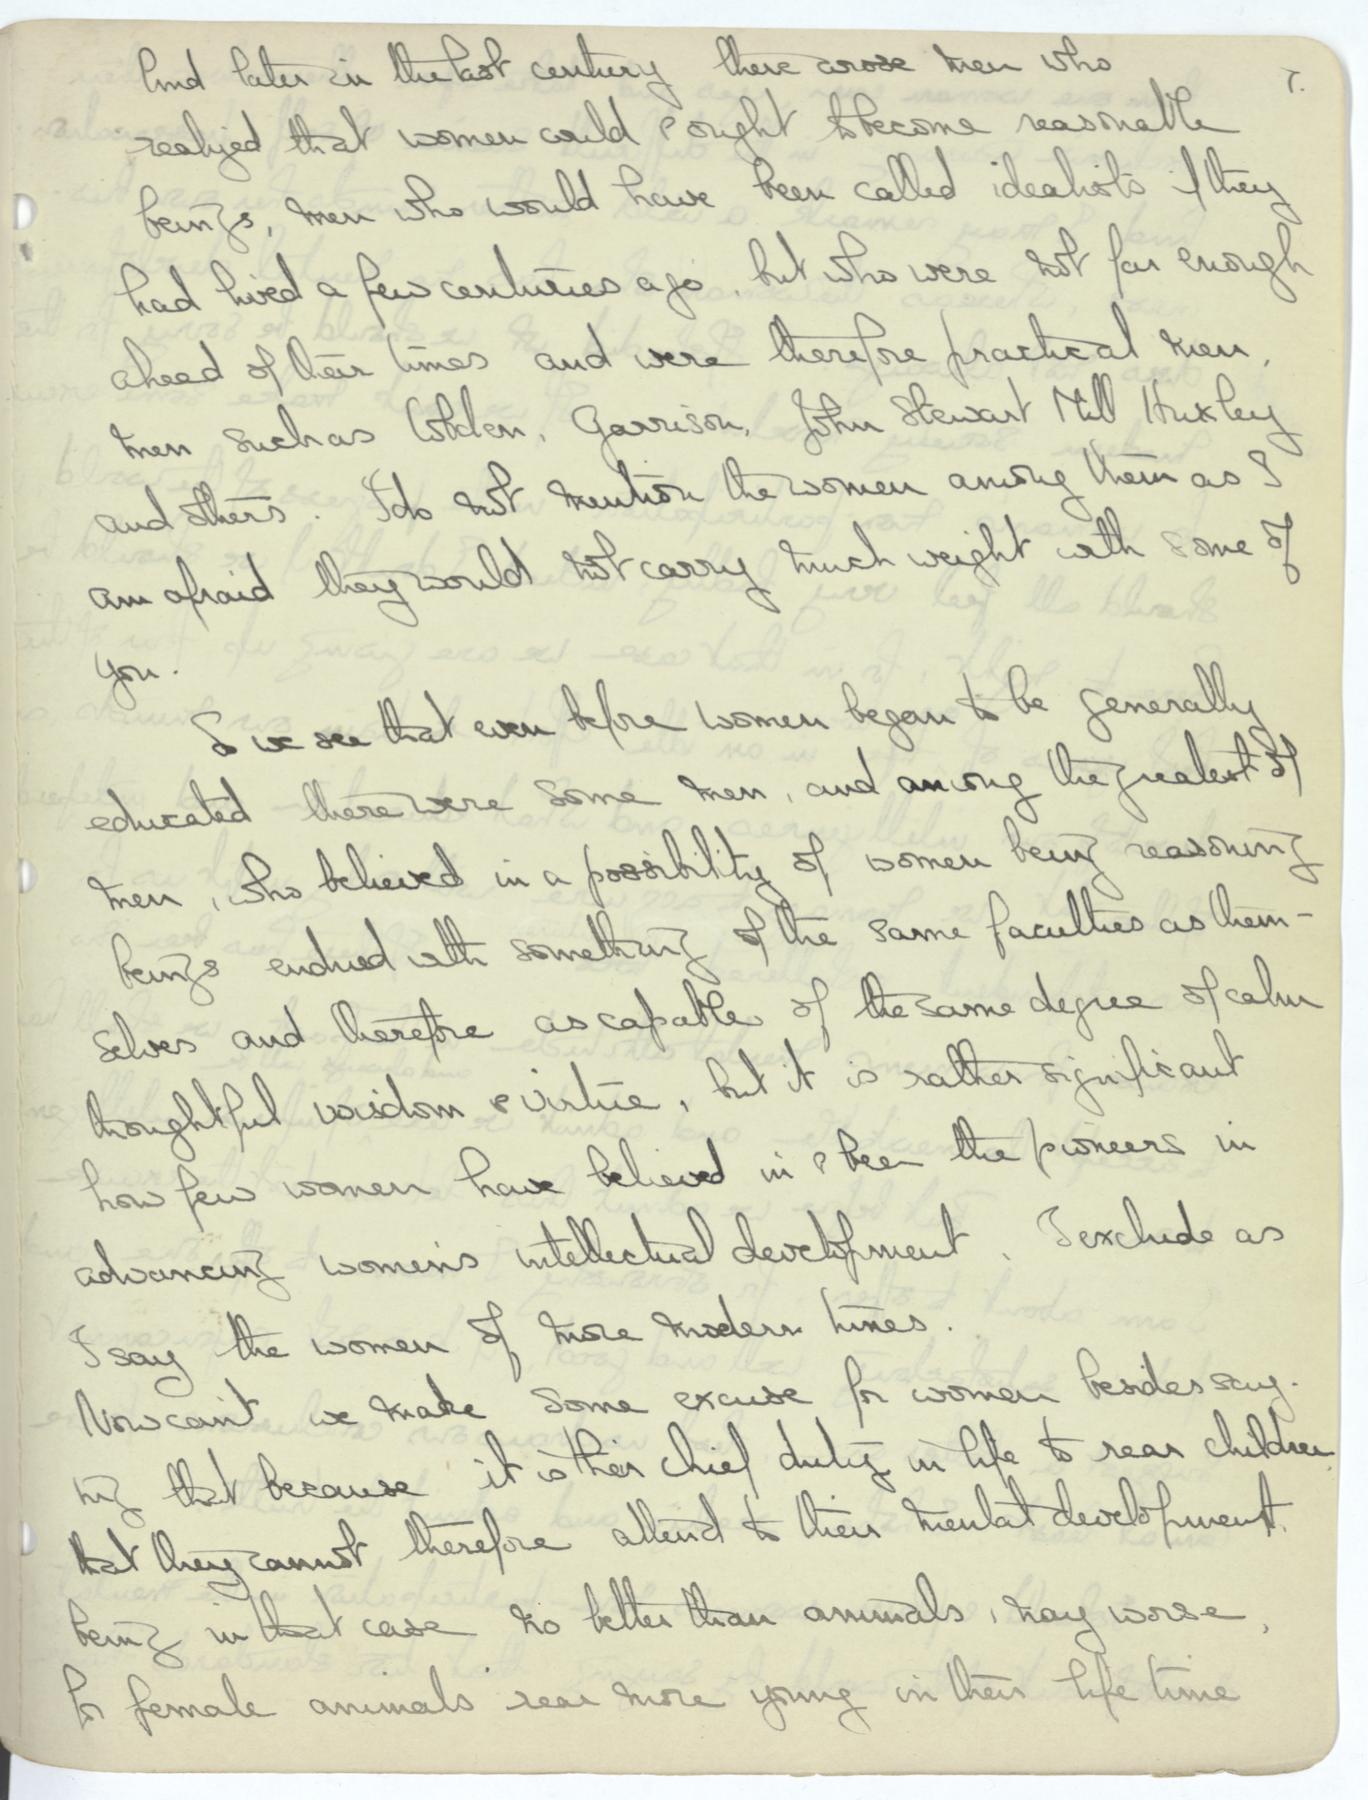 7.
And later in the last century there arose men who
realized that women could & ought to become reasonable
beings, men who would have been called idealists if they
had lived a few centuries ago, but who were not far enough
ahead of their times and were therefore practical men,
men such as Cobden, Garrison, John Stewart Mill Huxley
and others. I do not mention the women among them as I
am afraid they would not carry much weight with some of
you.
So we see that even before women began to be generally
educated there were some men, and among the greatest of
men, who believed in a possibility of women being reasoning
beings endued with something of the same faculties as them-
selves and therefore as capable of the same degree of calm
thoughtful wisdom & virtue, but it is rather significant
how few women have believed in & been the pioneers in
advancing women's intellectual development. I exclude as
I say the women of more modern times.
Now can't we make some excuse for women besides say-
ing that because it is their chief duty in life to rear children
that they cannot therefore attend to their mental development,
being in that case no better than animals, nay worse,
for female animals rear more young in their life time